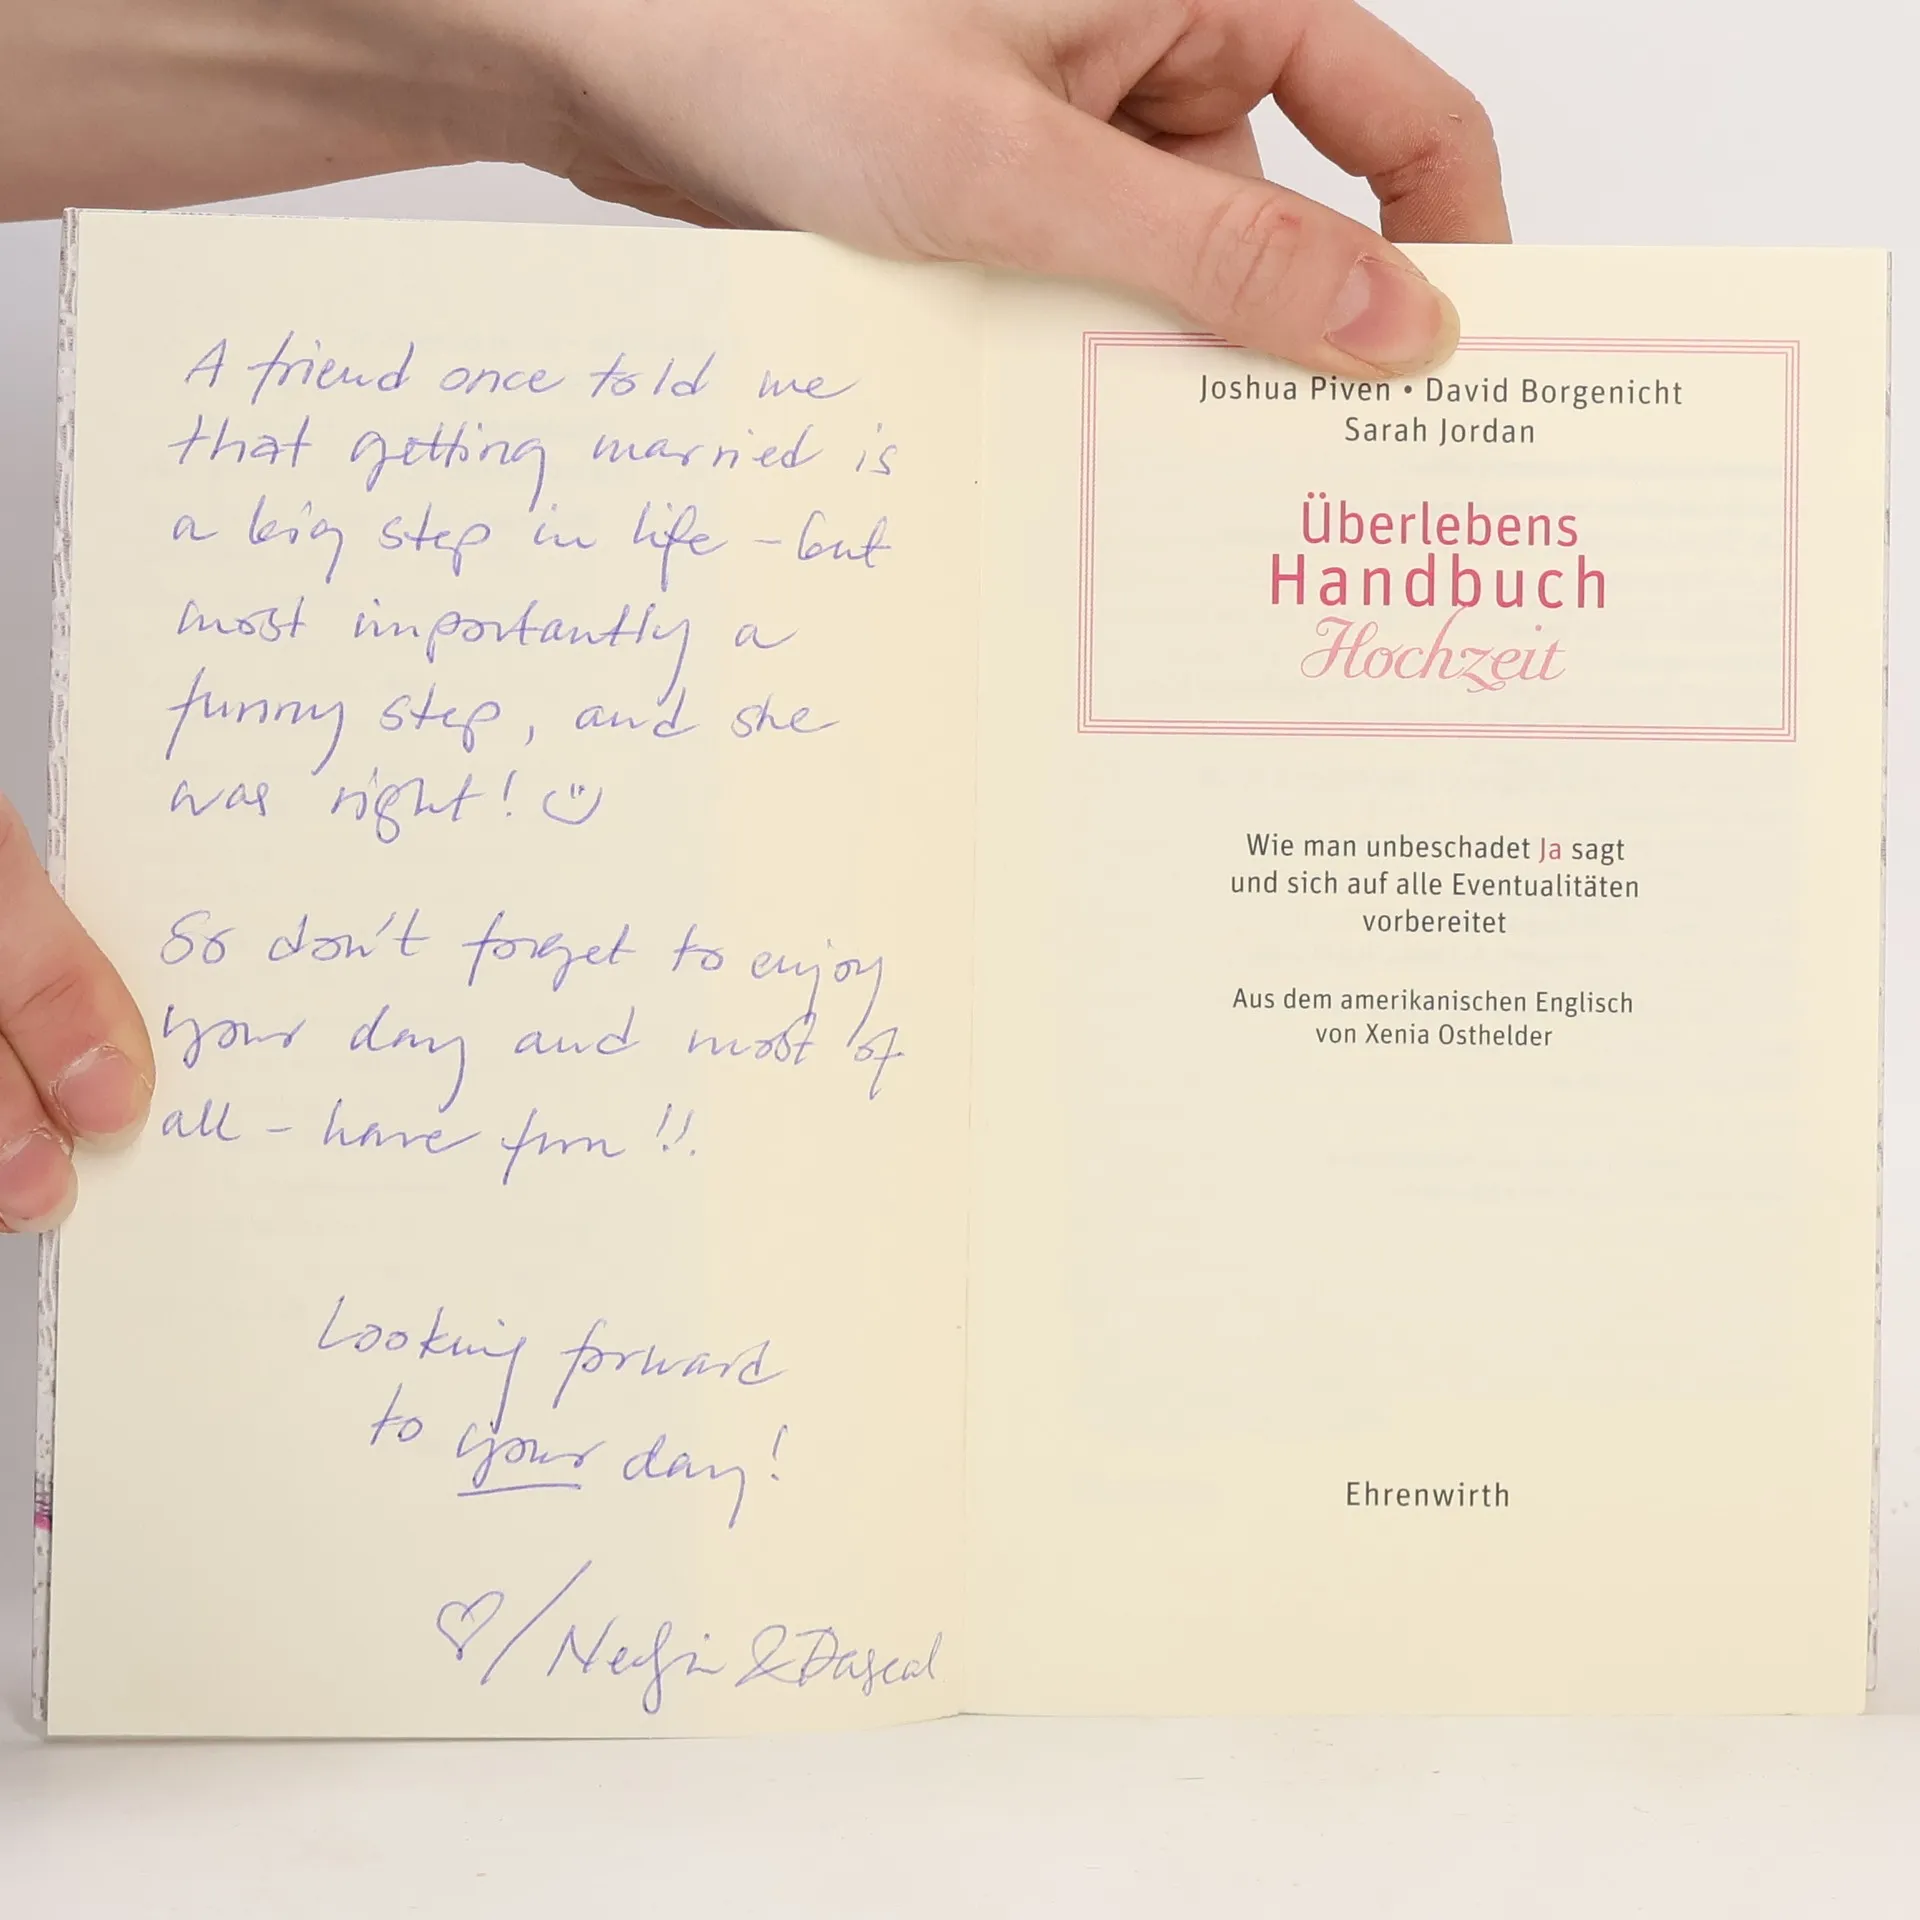 A friend once told me
that getting married is
a big step in life - but
most importantly a
funny step, and she
was right!
So don't forget to enjoy
your day and most of
all - have fun!!
Looking forward
to your day!
&
Joshua Piven • David Borgenicht
Sarah Jordan
Überlebens
Handbuch
Hochzeit
Wie man unbeschadet Ja sagt
und sich auf alle Eventualitäten
vorbereitet
Aus dem amerikanischen Englisch
von Xenia Osthelder
Ehrenwirth